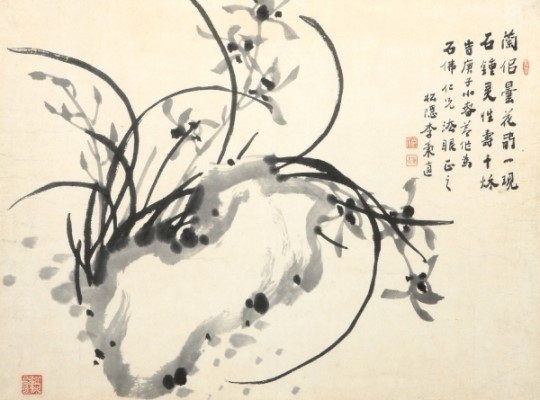 蘭侶曇花前一現
石鐘灵性壽千秋
峕庚子小春若作為
石佛仁兄法眼正之
松隱李秉直